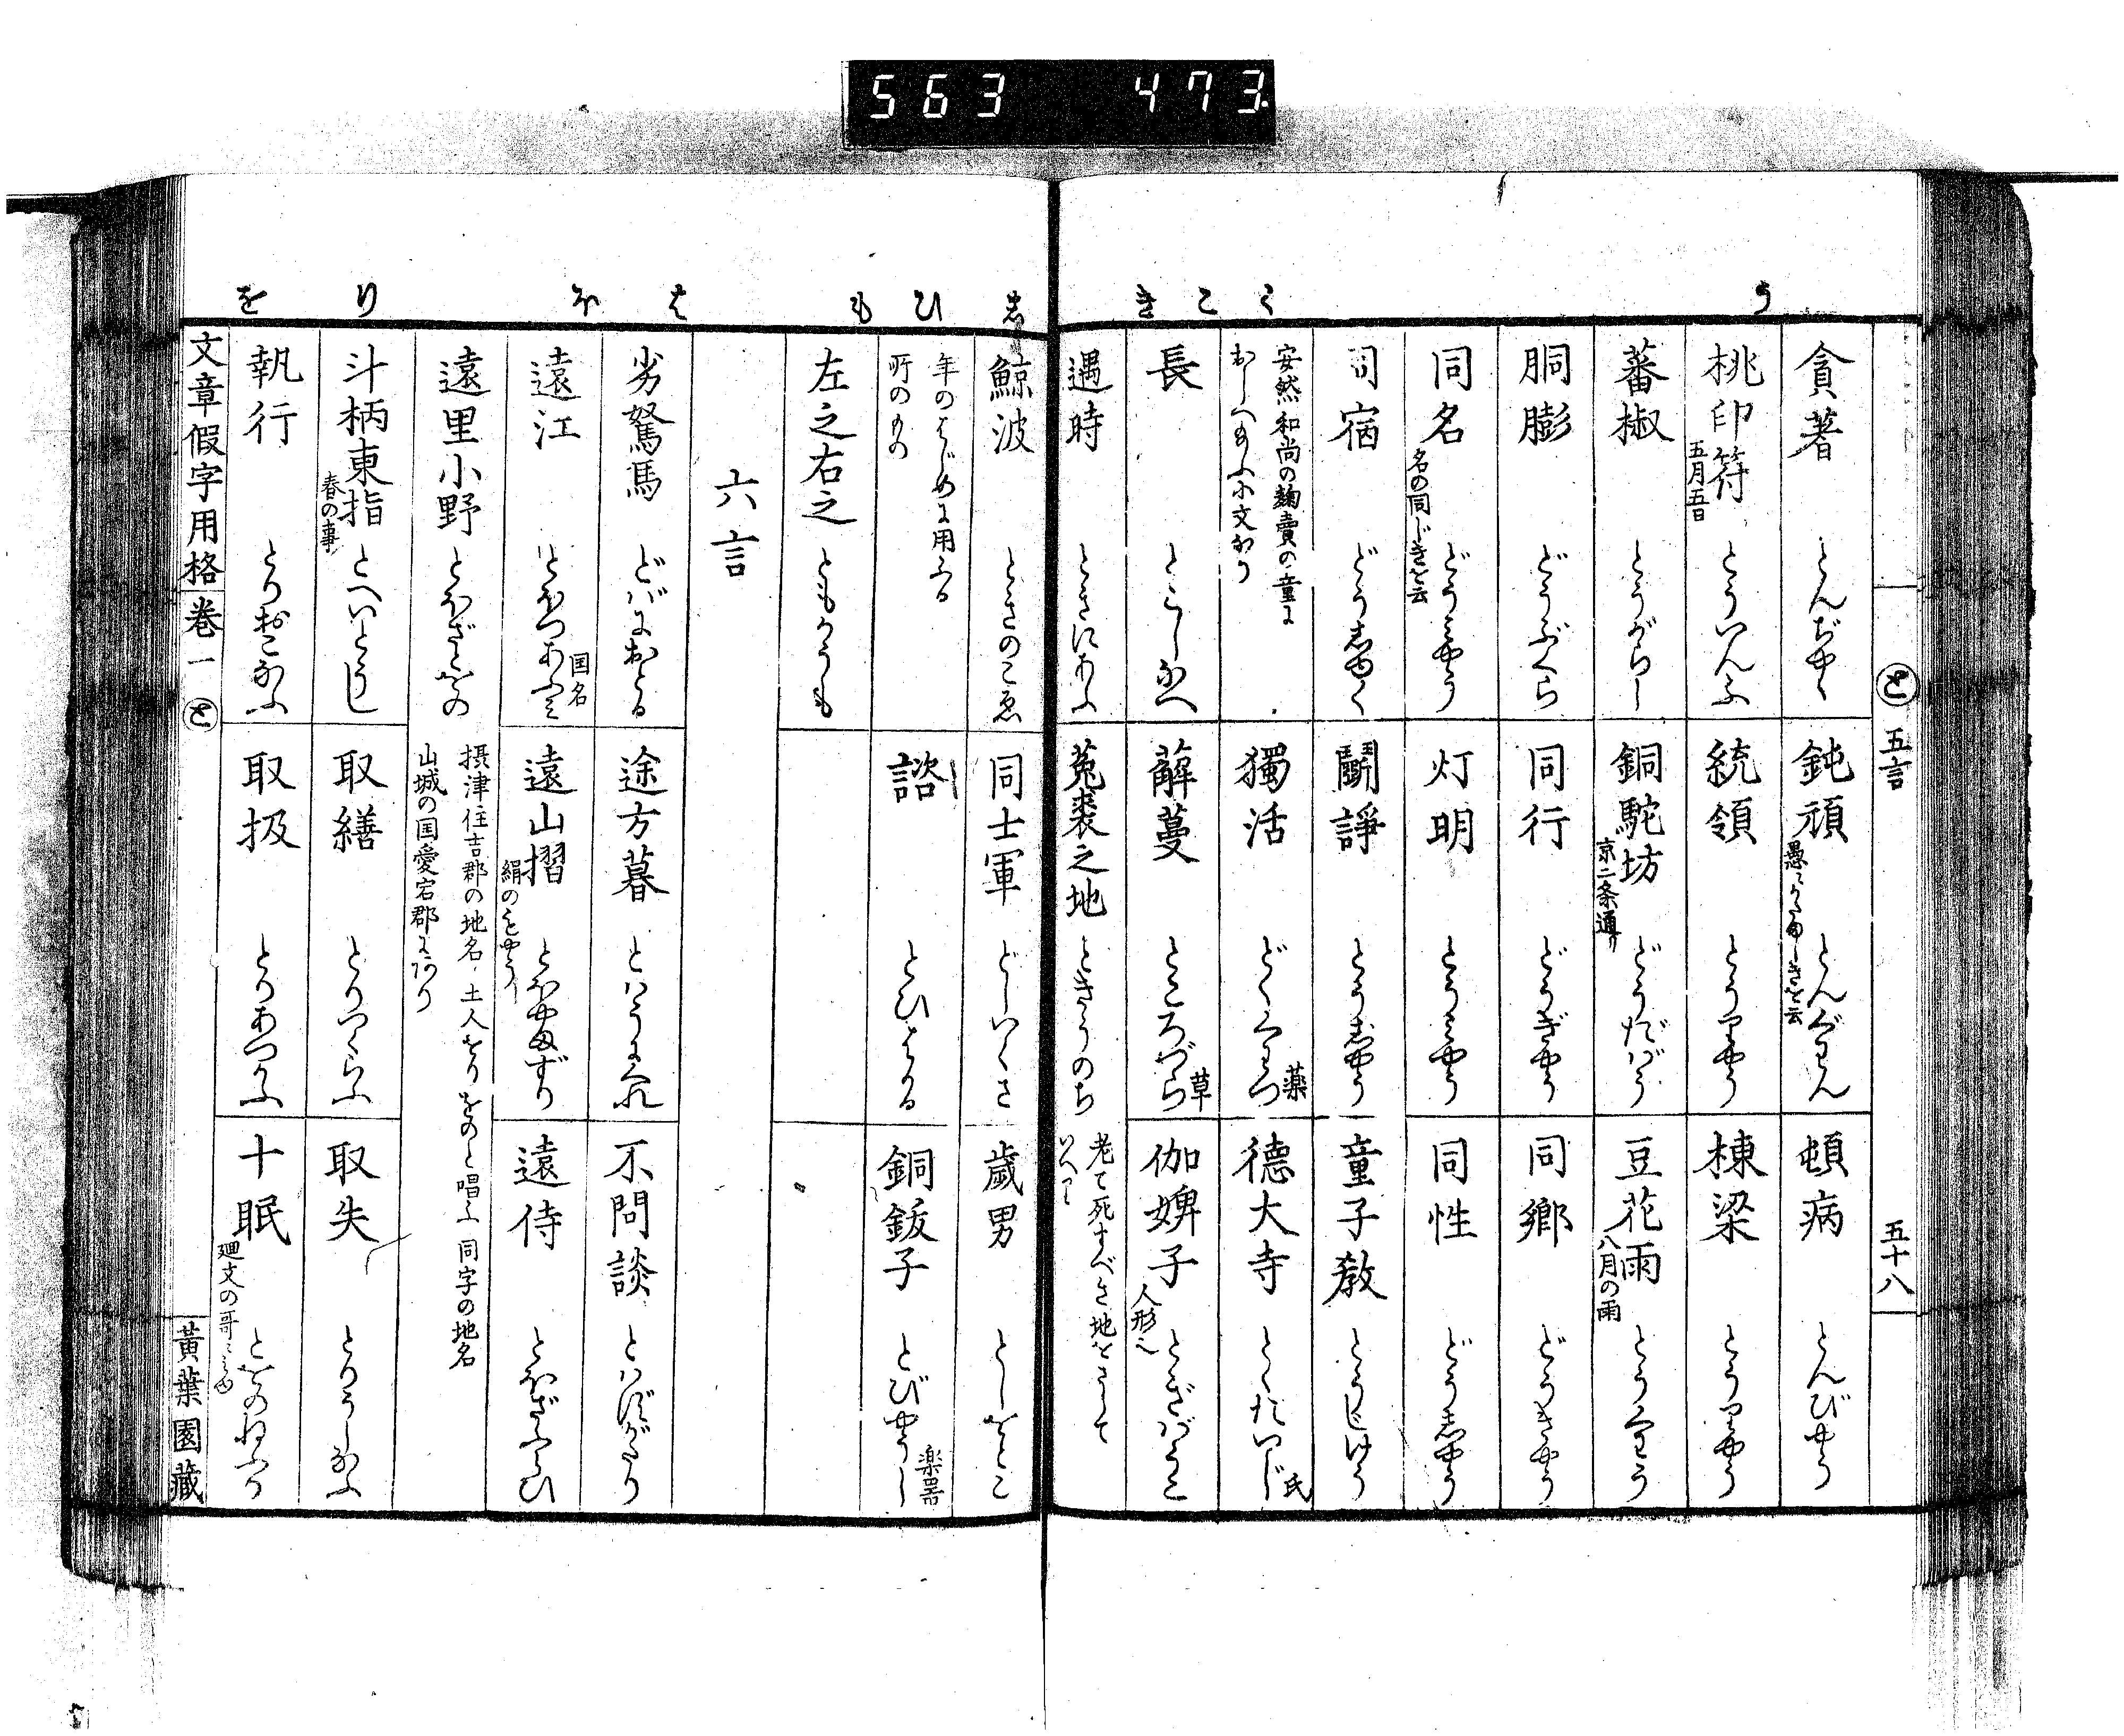 563 473
う
くこき
と 五言 五十八
貪著 とんぢやく
鈍頑 愚にかたましきを云 とんぐわん
頓病 とんびやう
桃印符 五月五日 とういんふ
統領 とうりやう
棟梁 とうりやう
蕃椒 とうがらし
銅駝坊 京二条通り どうだばう
豆花雨 八月の雨 とうくわう
胴膨 どうぶくら
同行 どうぎやう
同郷 どうきやう
同名 名の同じきを云 どうみやう
灯明 とうみやう
同性 どうしやう
同宿 どうしゆく
鬭諍 とうしやう
童子教 とうじけう
安然和尚の麹賣の童に
おしへ給ふ小文あり
獨活 薬 どくくわつ
德大寺 氏 とくだいじ
長 とこしなへ
薢蔓 草 ところづら
伽婢子 人形也 とぎばうこ
遇時 ときにあふ
菟裘之地 ときうのち
老て死すべき地をさして
いへり
しひも
は ほ り を
鯨波 ときのこゑ
同士軍 どしいくさ
歳男 としをとこ
年のはじめに用ふる
所のもの
諮 とひはかる
銅鈸子 楽器 とびやうし
左之右之 ともかうも
六言
劣駑馬 どばにおとる
途方暮 とはうにくれ
不問談 とはずがたり
遠江 国名 とほつあふみ
遠山摺 絹のもやう とほやまずり
遠侍 とほざふらひ
遠里小野 とほざとをの
摂津住吉郡の地名、土人をりをのと唱ふ 同字の地名
山城の国愛宕郡にあり
斗柄東指 春の事 とへいとうし
取繕 とりつくらふ
取失 とりうしなふ
執行 とりおこなふ
取扱 とりあつかふ
十眠 廻文の哥にみゆ とをのねふり
文章假字用格 巻一 と 黄葉園藏